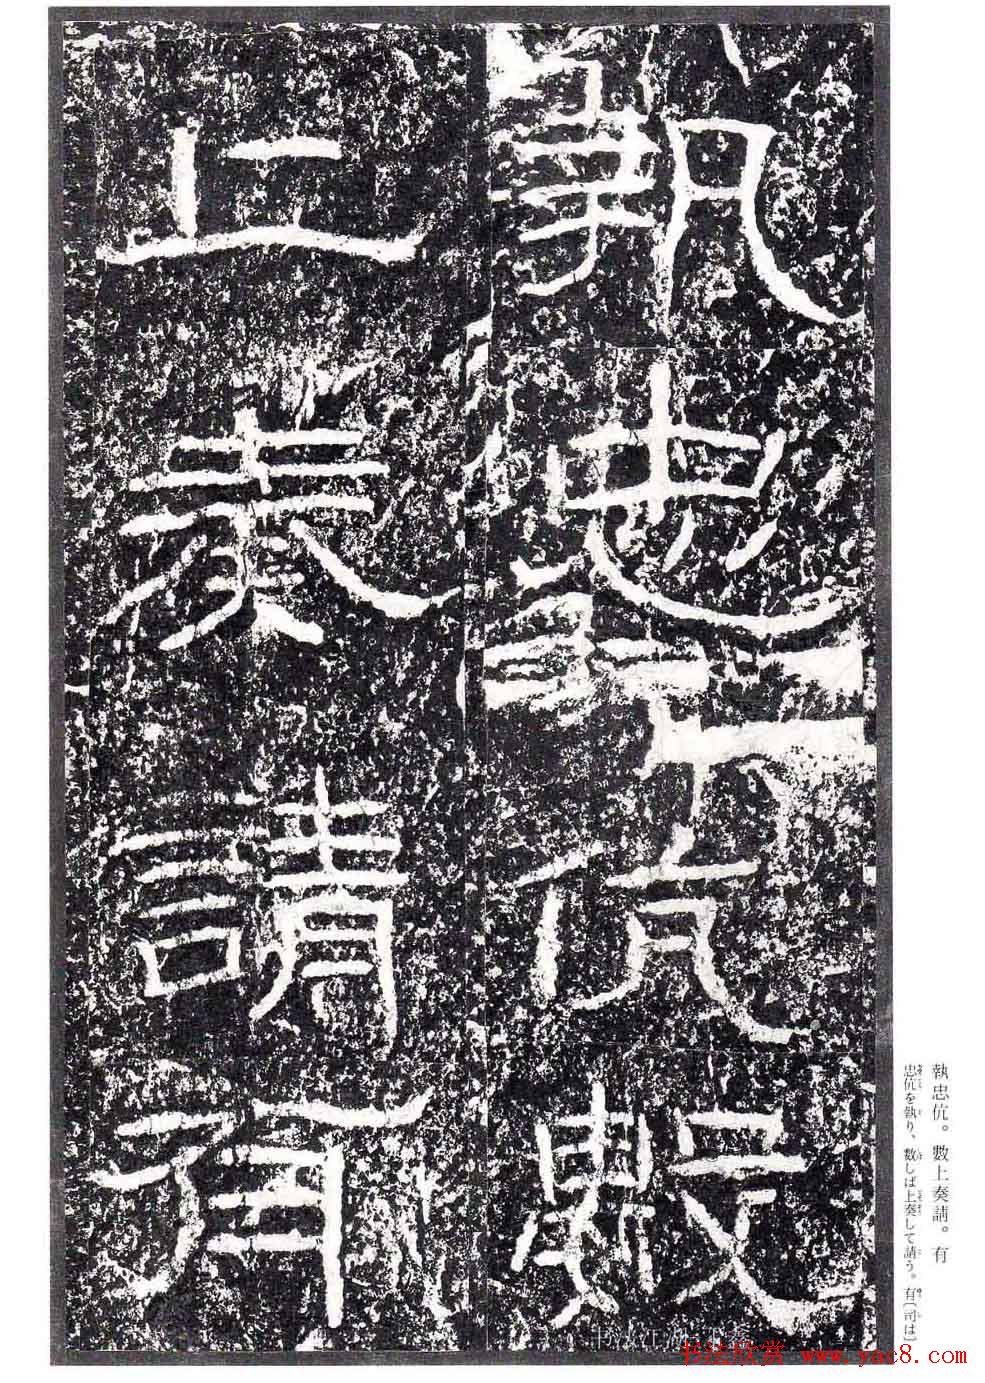 執忠伉數
上奏請有
執忠伉。數上奏請。有
忠伉を執り、數しば上奏して請う。有〔司は〕
书法欣赏 www.yac8.com